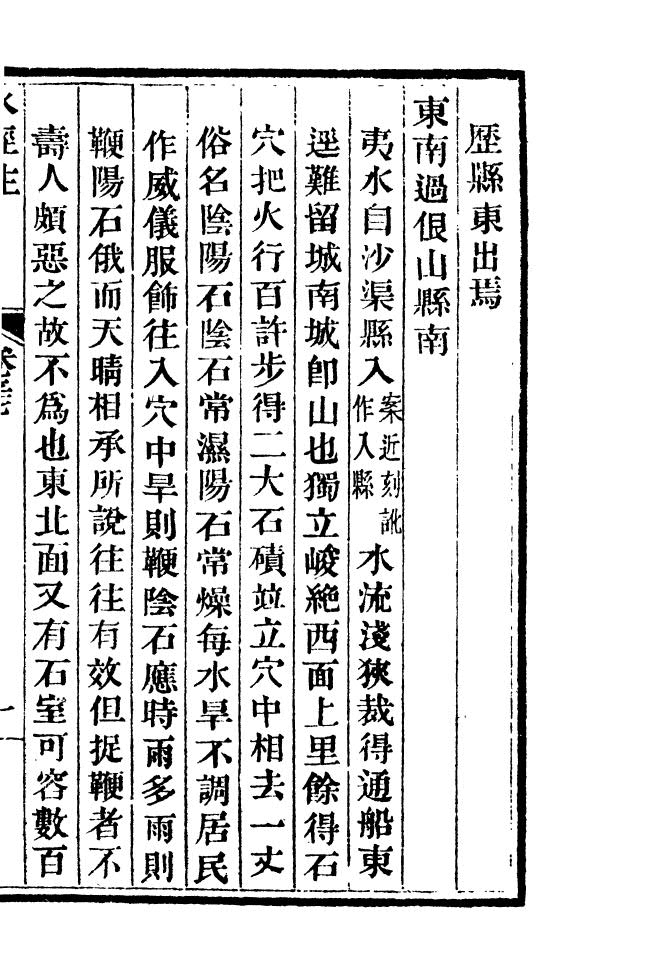 歷縣東出焉
東南過佷山縣南
夷水自沙渠縣入案近刻訛作入縣水流淺狹裁得通船東
逕難留城南城卽山也獨立峻絶西面上里餘得石
穴把火行百許步得二大石磧竝立穴中相去一丈
俗名陰陽石陰石常濕陽石常燥每水旱不調居民
作威儀服飾往入穴中旱則鞭陰石應時雨多雨則
鞭陽石俄而天晴相承所說往往有效但捉鞭者不
壽人頗惡之故不爲也東北面又有石室可容數百
水經注